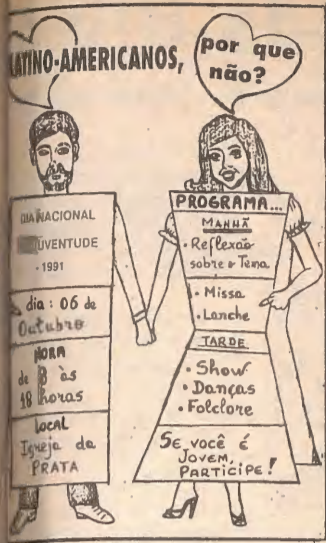 LATINO-AMERICANOS,
por que
não?
DIA NACIONAL
JUVENTUDE
-1991
dia: 06 de
Outubro
HORA
de 8 às
18 horas
LOCAL
Igreja da
PRATA
PROGRAMA...
MANHÃ
• Reflexão
sobre o Tema
• Missa
• Lanche
TARDE
• Show
• Danças
• Folclore
SE você é
JOVEM,
PARTICIPE!